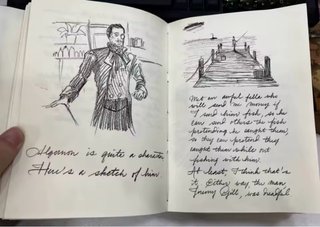 Algernon is quite a character
Here's a sketch of him
Met an awful fella who
will send me money if
I send him fish, so he
can send others the fish
pretending he caught them
so they can pretend they
caught them while out
fishing with him
At least, I think that's
it. Either way the man
Jeremy Gill, was dreadful